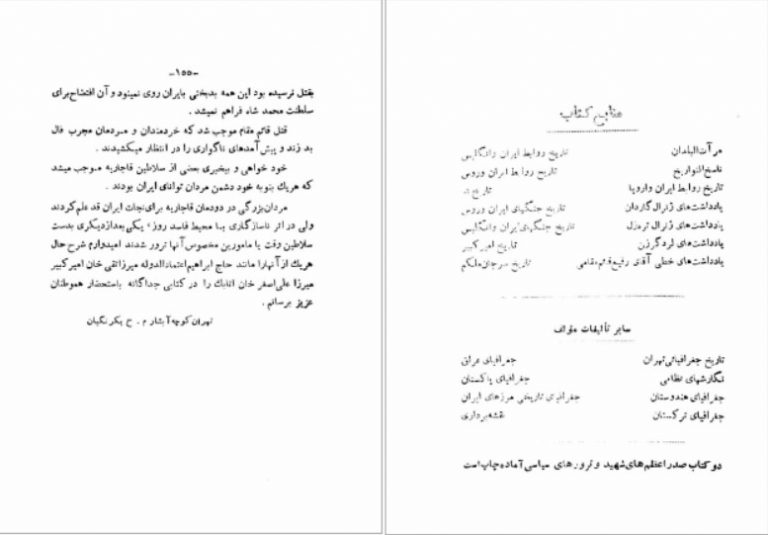 -۱۵۵-
بقتل نرسیده بود این همه بدبختی بایران روی نمینمود و آن افتضاح برای
سلطنت محمد شاه فراهم نمیشد .
قتل قائم مقام موجب شد که خردمندان و مردمان مجرب فال
بد زدند و پیش آمدهای ناگواری را در انتظار میکشیدند .
خود خواهی و بیخبری بعضی از سلاطین قاجاریه موجب میشد
که هریک بنوبه خود دشمن مردان توانای ایران بودند .
مردان بزرگی در دودمان قاجاریه برای نجات ایران قد علم کردند
ولی در اثر ناسازگاری با محیط فاسد روز، یکی بعد از دیگری بدست
سلاطین وقت یا مامورین مخصوص آنها ترور شدند امیدوارم شرح حال
هریک از آنها را مانند حاج ابراهیم اعتمادالدوله میرزا تقی خان امیر کبیر
میرزا علی اصغر خان اتابک را در کتابی جداگانه باستحضار هموطنان
عزیز برسانم .
تهران کوچه آبشار م . ح یکرنگیان
منابع کتاب
مرآت البلدان تاریخ روابط ایران و انگلیس
ناسخ التواریخ تاریخ روابط ایران و روس
تاریخ روابط ایران و اروپا تاریخ
یادداشت های ژنرال گاردان تاریخ جنگهای ایران و روس
یادداشت های ژنرال ترمزل تاریخ جنگهای ایران و انگلیس
یادداشت های لرد کرزن تاریخ امیر کبیر
یادداشت های خطی آقای رفیع قائم مقامی تاریخ سرجان ملکم
سایر تألیفات مؤلف
تاریخ جغرافیائی تهران جغرافیای عراق
نگارشهای نظامی جغرافیای پاکستان
جغرافیای هندوستان جغرافیای تاریخی مرزهای ایران
جغرافیای ترکستان نقشه برداری
دو کتاب صدر اعظم های شهید و ترور های سیاسی آماده چاپ است